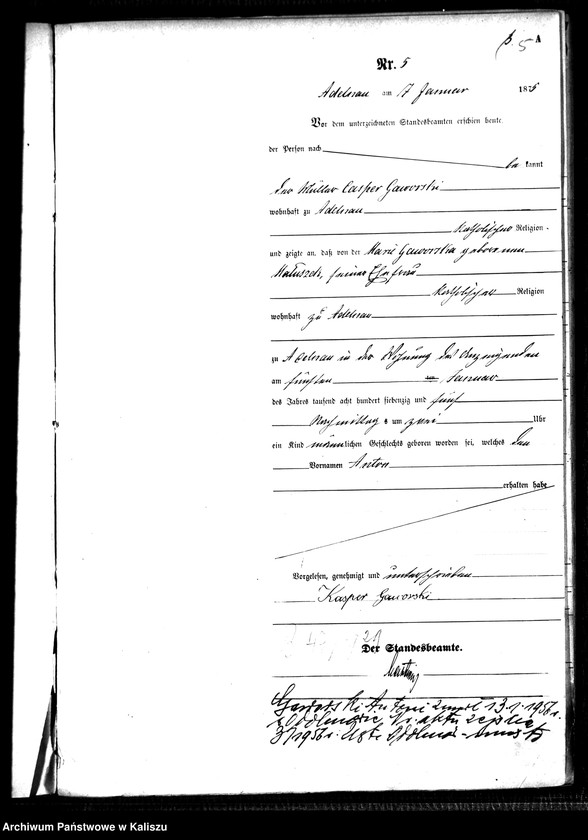 B. 5 A
Nr. 5
Adelnau am 7 Januar 1875
Vor dem unterzeichneten Standesbeamten erschien heute
der Person nach
be kannt
der Müller Casper Gaworski
wohnhaft zu Adelnau
katholischer Religion
und zeigte an, daß von der Marie Gaworska geborenen
Matuszek, seiner Ehefrau
katholischer Religion
wohnhaft zu Adelnau
zu Adelnau in der Wohnung des Anzeigenden
am fünften Januar
des Jahres tausend acht hundert siebenzig und fünf
Nachmittag s um zwei Uhr
ein Kind männlichen Geschlechts geboren worden sei, welches den
Vornamen Anton
erhalten habe
Vorgelesen, genehmigt und unterschrieben
Kasper Gaworski
Der Standesbeamte.
Gaworski Antoni zmarł 13.1.1956 r.
w Odolanowie Nr aktu zejścia
3/1956 r.
Archiwum Państwowe w Kaliszu